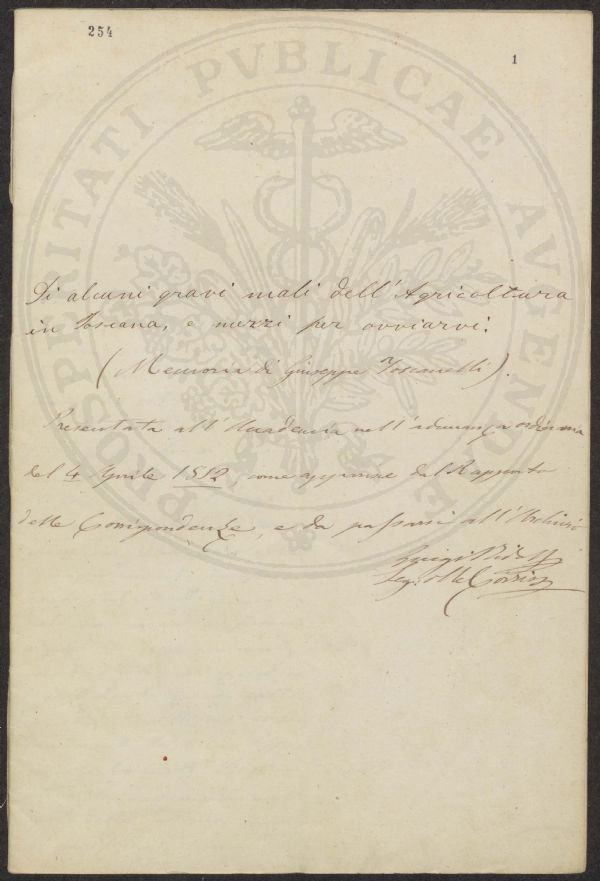 254
1
PROSPERITATI PVBLICAE AVGENDAE
Di alcuni gravi mali dell'Agricoltura
in Toscana, e mezzi per ovviarvi.
(Memoria di Giuseppe Toscanelli).
Presentata all'Accademia nell'adunanza ordinaria
del 4 Aprile 1852, come apparisce dal Rapporto
delle Corrispondenze, e da passarsi all'Archivio
Luigi
Seg. delle Corrisp